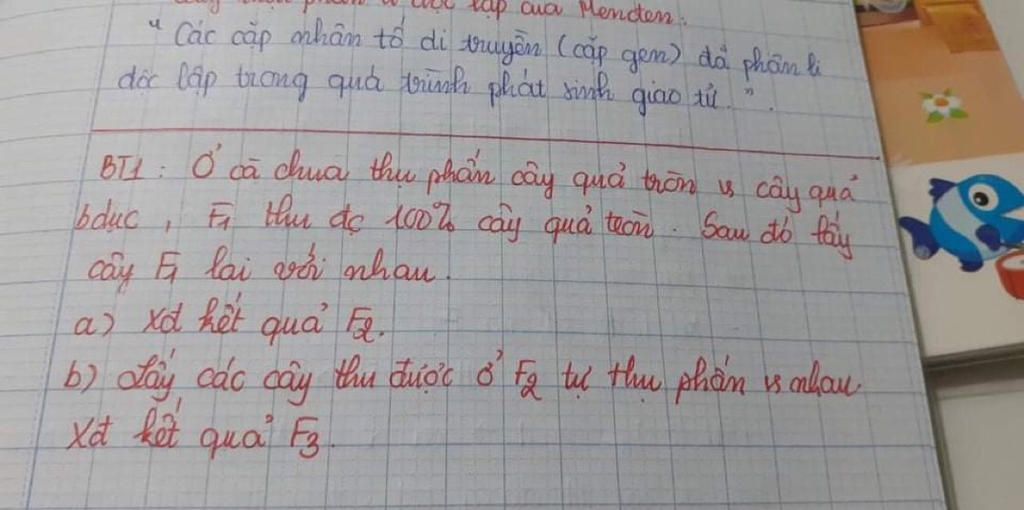 tập của Menđen.
" Các cặp nhân tố di truyền (cặp gen) đã phân li
độc lập trong quá trình phát sinh giao tử. ".
BT1 : Ở cà chua thụ phấn cây quả tròn vs cây quả
bdục , F1 thu đc 100% cây quả tròn . Sau đó lấy
cây F1 lai với nhau.
a) Xđ kết quả F2.
b) Lấy các cây thu được ở F2 tự thụ phấn vs nhau
Xđ kết quả F3.